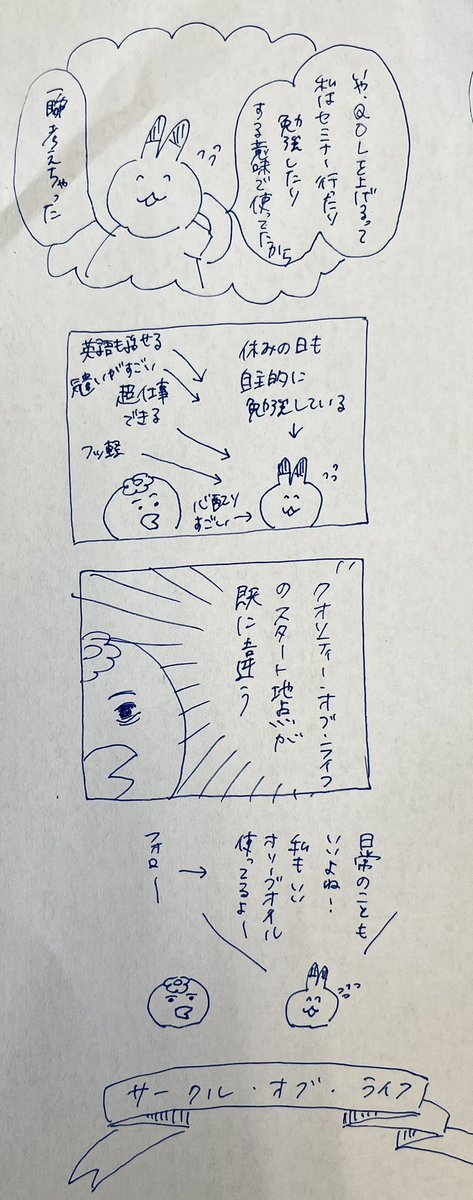 いや、QOLを上げるって
私はセミナー行ったり
勉強したり
する意味で使ってたから
一瞬考えちゃった
英語も話せる
気遣いがすごい
超仕事
できる
フッ軽
心配り
すごい
休みの日も
自主的に
勉強している
クオリティー・オブ・ライフ
のスタート地点が
既に違う
日常のことも
いいよね！
私もいい
オリーブオイル
使ってるよ〜
フォロー
サークル・オブ・ライフ